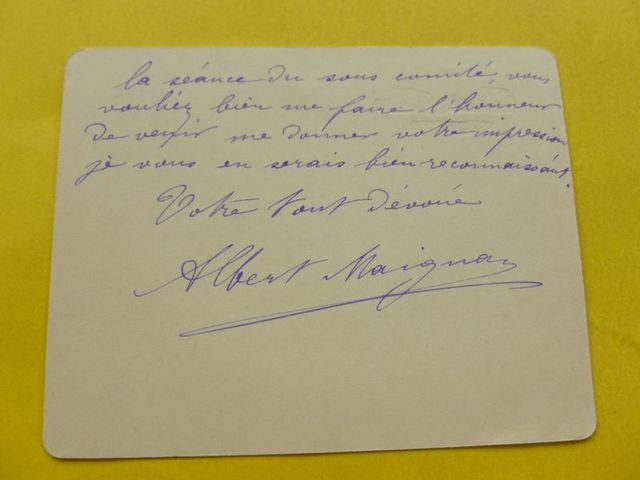 la séance du sous comité, vous
vouliez bien me faire l'honneur
de venir me donner votre impression
je vous en serais bien reconnaissant.
Votre tout dévoué
Albert Maignan